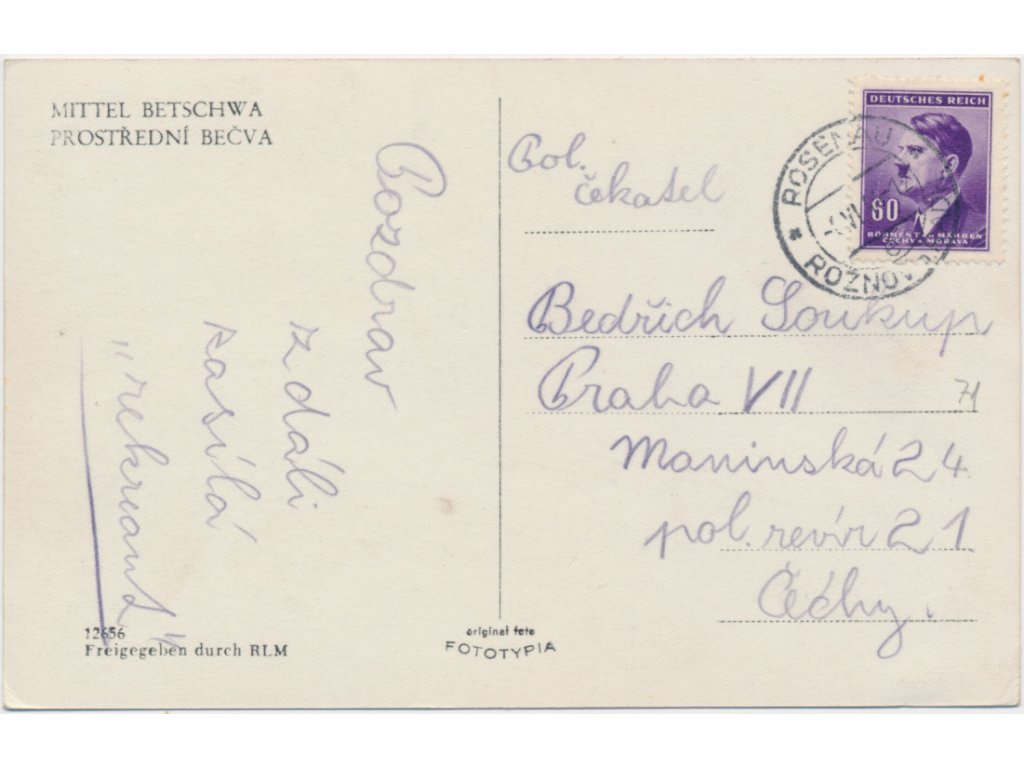 MITTEL BETSCHWA
PROSTŘEDNÍ BEČVA
Pozdrav
z dáli
zasílá
"rekruant"
12656
Freigegeben durch RLM
original foto
FOTOTYPIA
DEUTSCHES REICH
60
BÖHMEN UND MÄHREN
ČECHY A MORAVA
ROSENAU
ROŽNOV
Pol.
čekatel
Bedřich Soukup
Praha VII
71
Maninská 24.
pol. revír 21
Čechy.